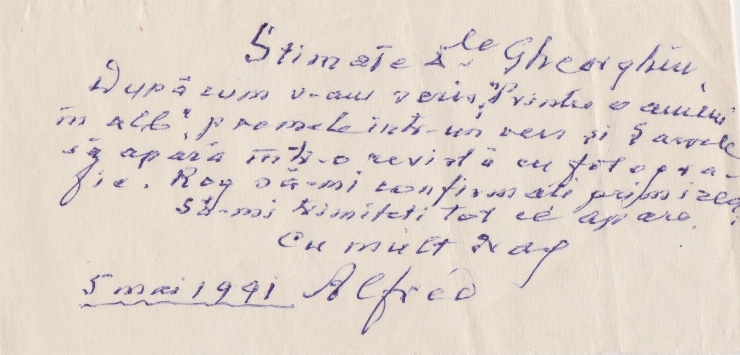 Stimate Dle Gheorghiu,
După cum v-am scris, "Printre o amintiri
în alb" poemele într-un vers și
să apară într-o revistă cu fotogra-
fie. Rog să-mi confirmați primirea,
Să-mi trimiteți tot ce apare.
Cu mult drag
5 mai 1991 Alfred